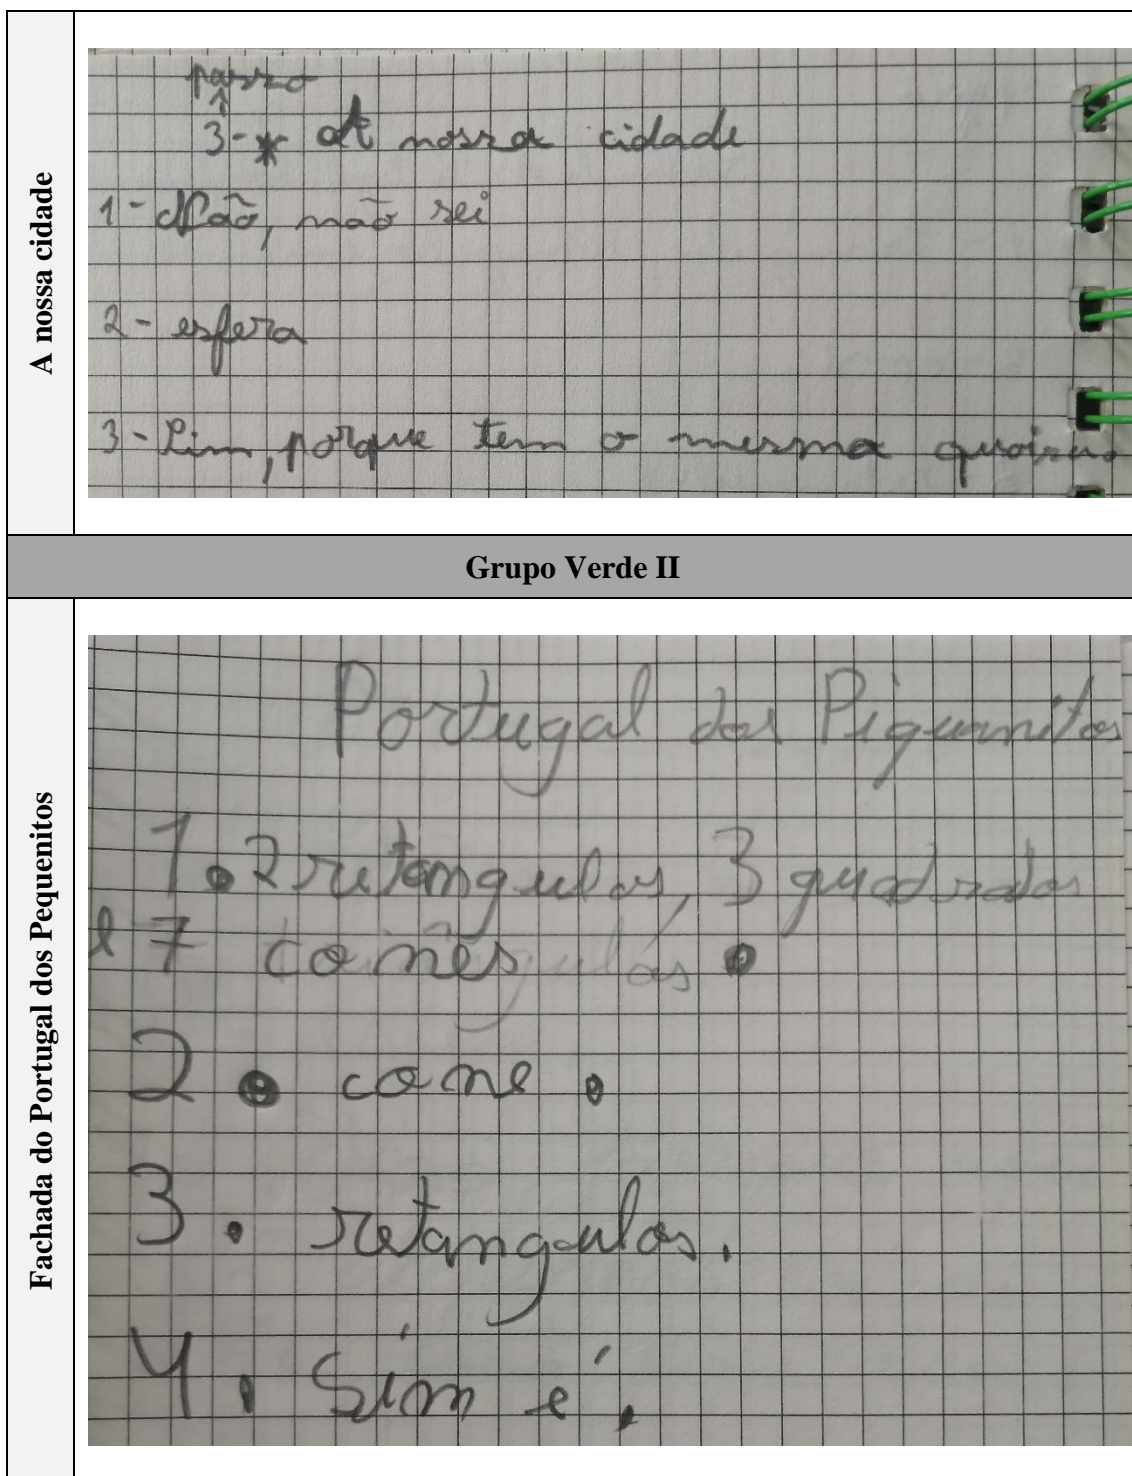 A nossa cidade
passo
3-* A nossa cidade
1- Não, não sei
2- esfera
3- Sim, porque tem o mesma
Grupo Verde II
Fachada do Portugal dos Pequenitos
Portugal dos Piquenitos
1. 2 retangulos, 3 quadrados
e 7 cones.
2. cone.
3. retangulos.
4. Sim é.